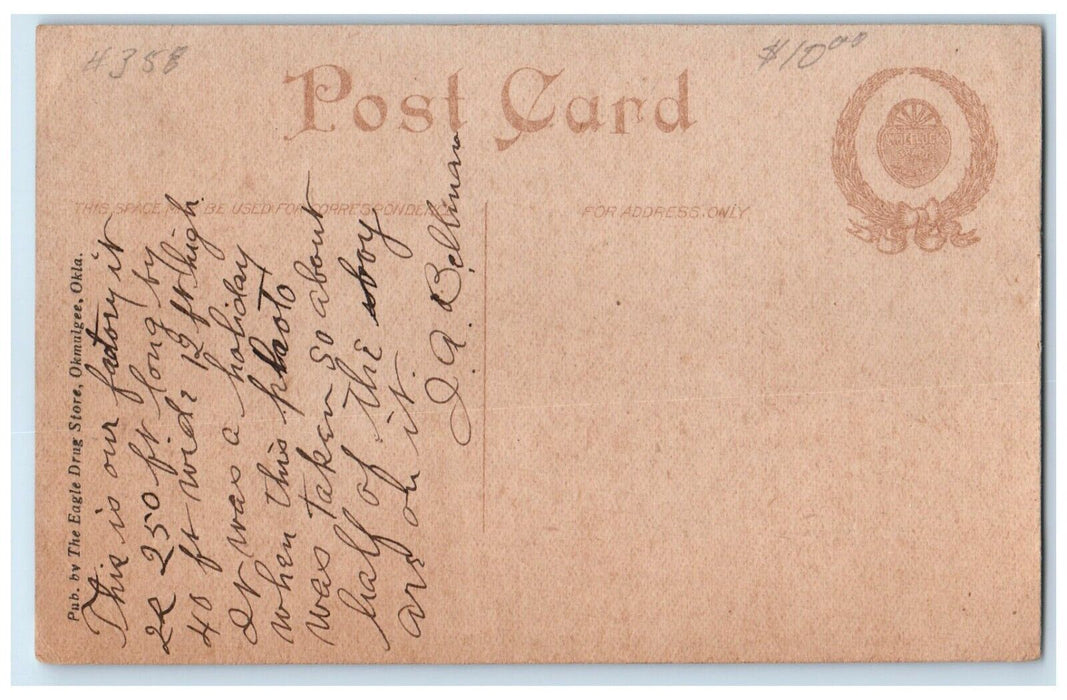 #358
$10.00
Post Card
THIS SPACE MAY BE USED FOR CORRESPONDENCE
FOR ADDRESS ONLY
Pub. by The Eagle Drug Store, Okmulgee, Okla.
This is our factory it
250 ft long by
40 ft wide 12 ft high
It was a holiday
when this photo
was taken so about
half of the boy
are on it.
J. A. Bellman